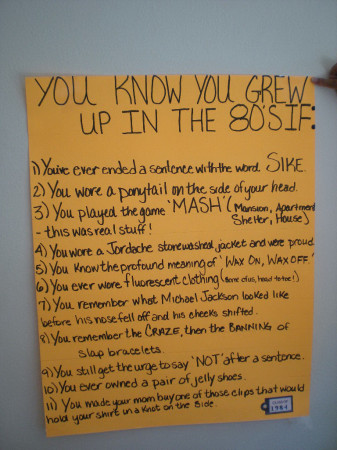 YOU KNOW YOU GREW
UP IN THE 80'S IF:
1) You've ever ended a sentence with the word SIKE.
2) You wore a ponytail on the side of your head.
3) You played the game 'MASH' (Mansion, Apartment
Shelter, House)
- this was real stuff!
4) You wore a Jordache stonewashed jacket and were proud.
5) You know the profound meaning of 'WAX ON, WAX OFF'
6) You ever wore fluorescent clothing (some of us, head to toe!)
7) You remember what Michael Jackson looked like
before his nose fell off and his cheeks shifted.
8) You remember the CRAZE, then the BANNING of
slap bracelets.
9) You still get the urge to say 'NOT' after a sentence.
10) You ever owned a pair of jelly shoes.
11) You made your mom buy one of those clips that would
hold your shirt in a knot on the side.
1984